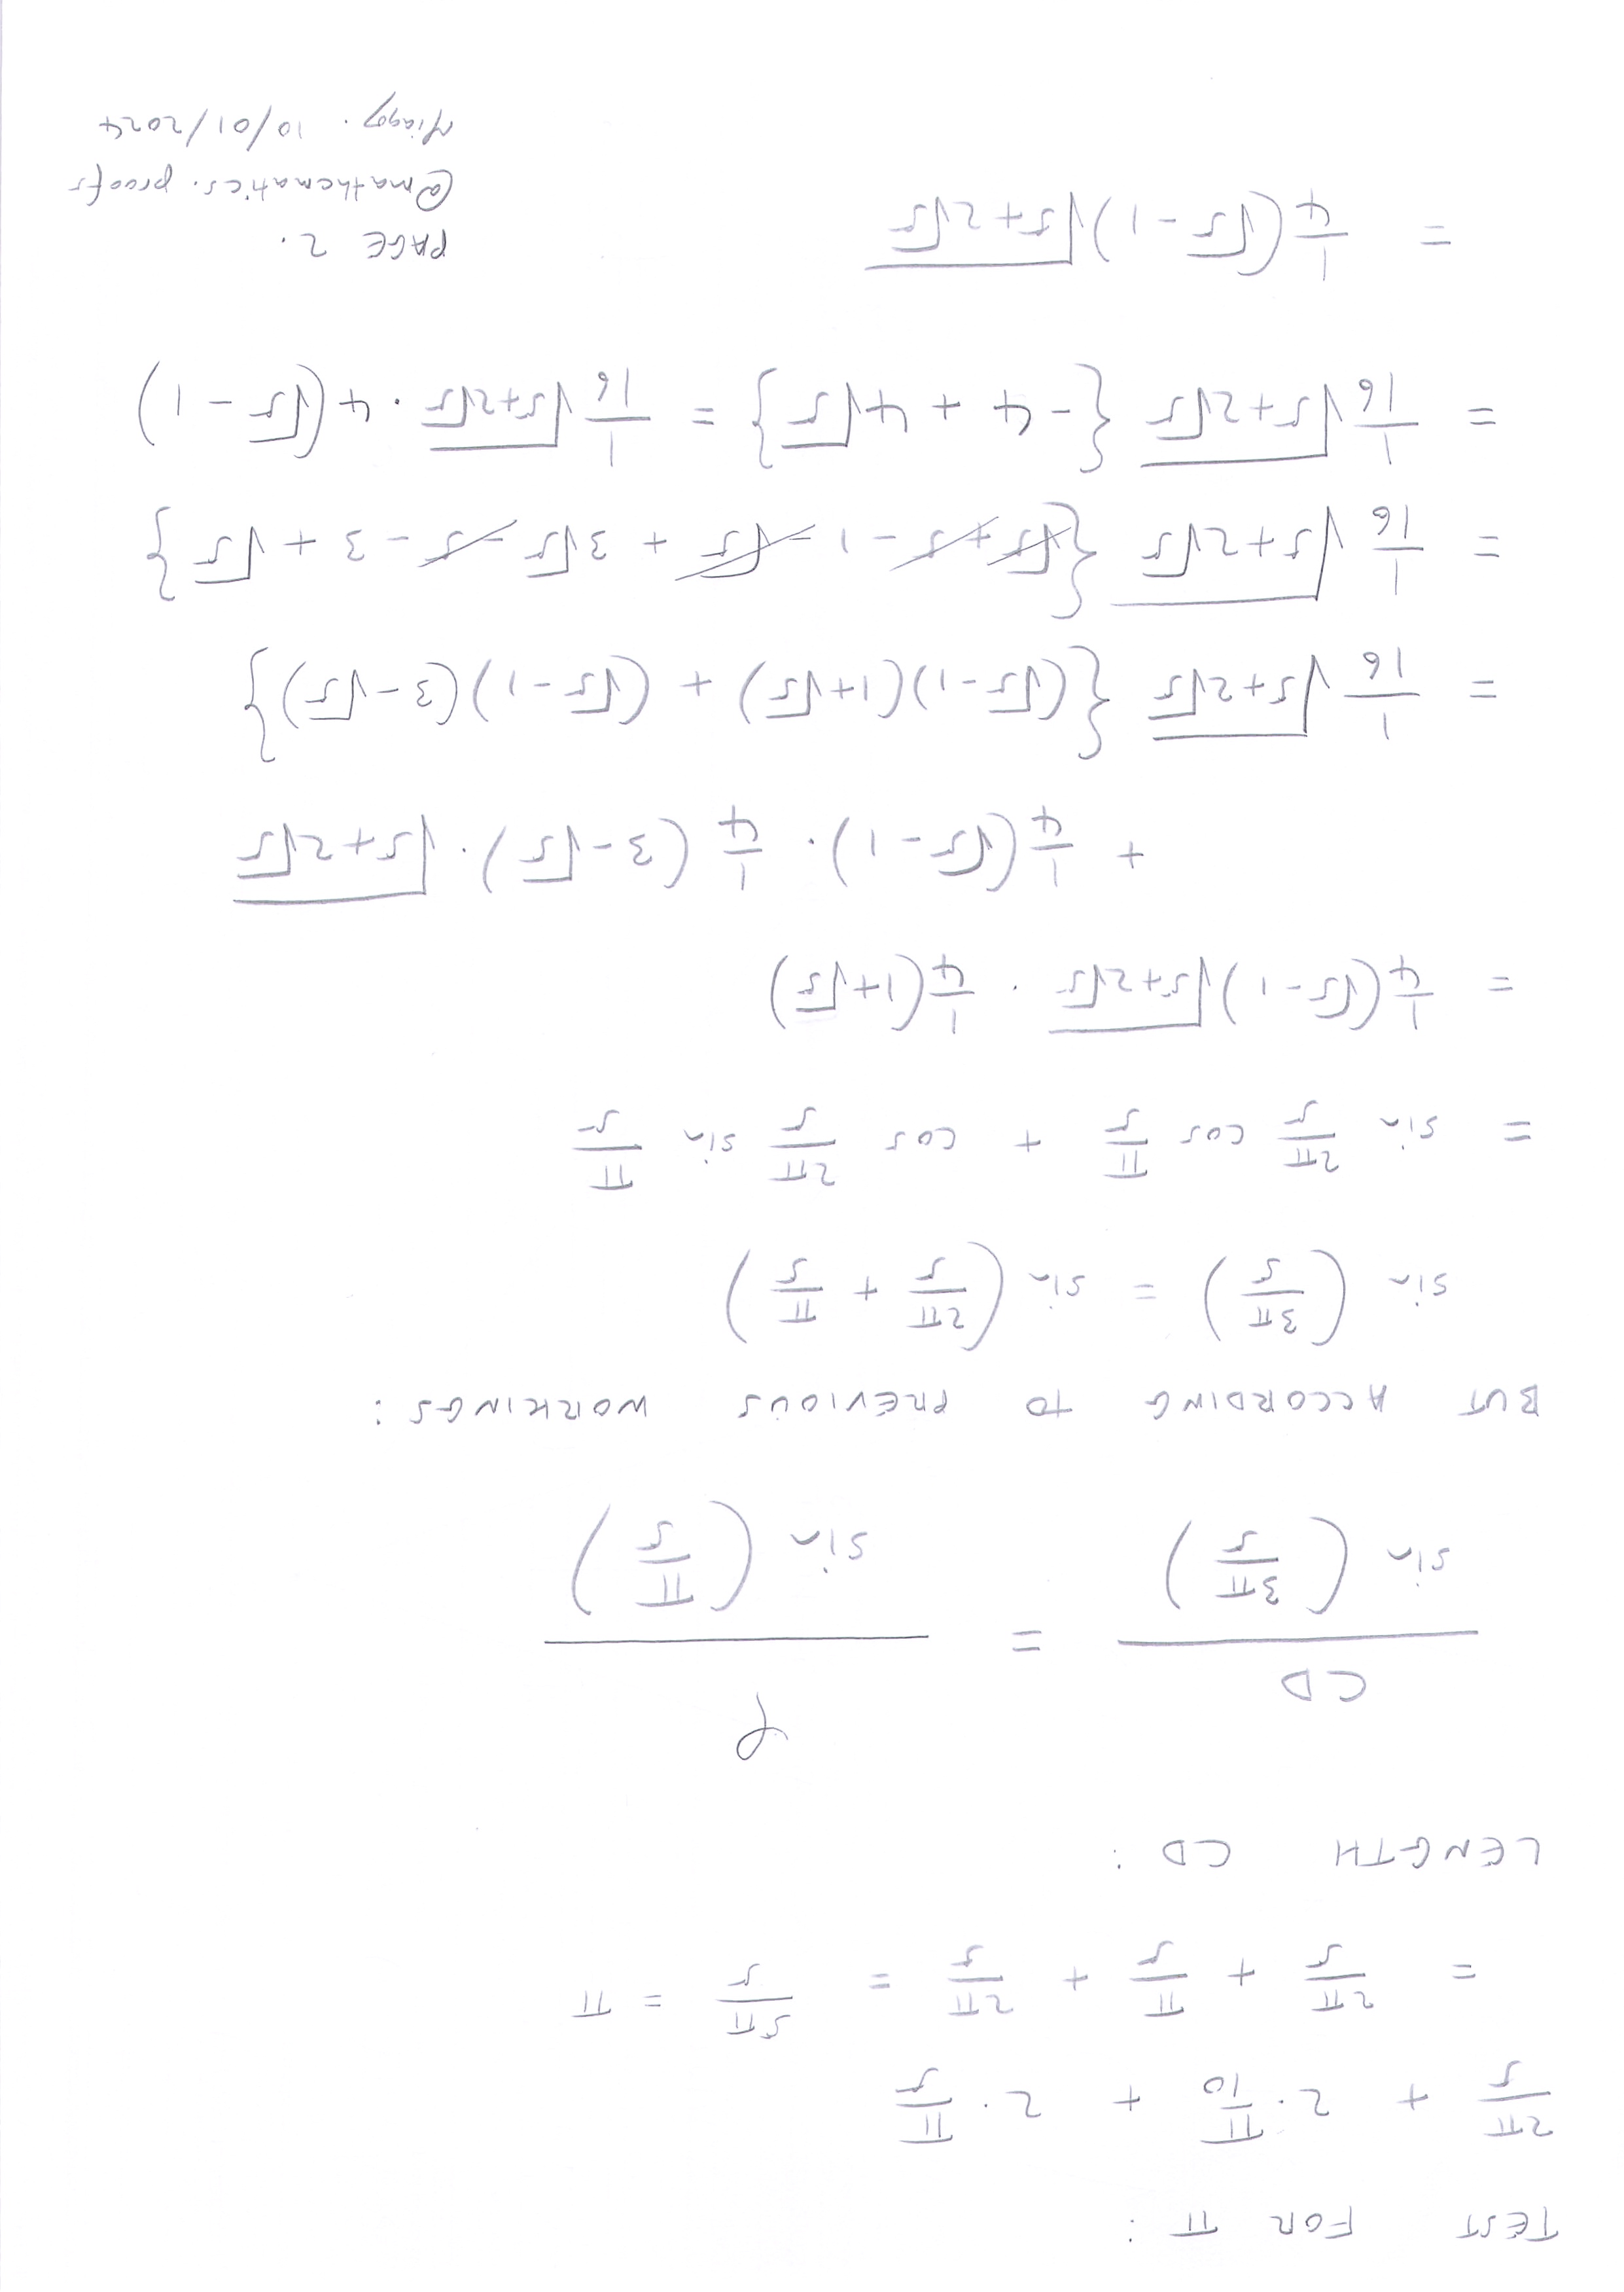 TEST FOR π :
2π/5 + 2 · π/10 + 2 · π/5
= 2π/5 + π/5 + 2π/5 = 5π/5 = π
LENGTH CD :
CD / sin (3π/5) = φ / sin (π/5)
BUT ACCORDING TO PREVIOUS WORKINGS :
sin (3π/5) = sin (2π/5 + π/5)
= sin 2π/5 cos π/5 + cos 2π/5 sin π/5
= 1/4 (√5 - 1) √(5+2√5) · 1/4 (1+√5)
+ 1/4 (√5 - 1) · 1/4 (3 - √5) · √(5+2√5)
= 1/16 √(5+2√5) {(√5 - 1)(1+√5) + (√5 - 1)(3 - √5)}
= 1/16 √(5+2√5) {√5 + 5 - 1 - √5 + 3√5 - 5 - 3 + √5}
= 1/16 √(5+2√5) {-4 + 4√5} = 1/16 √(5+2√5) · 4(√5 - 1)
= 1/4 (√5 - 1) √(5+2√5)
PAGE 2.
@mathematics.proofs
10/01/2024